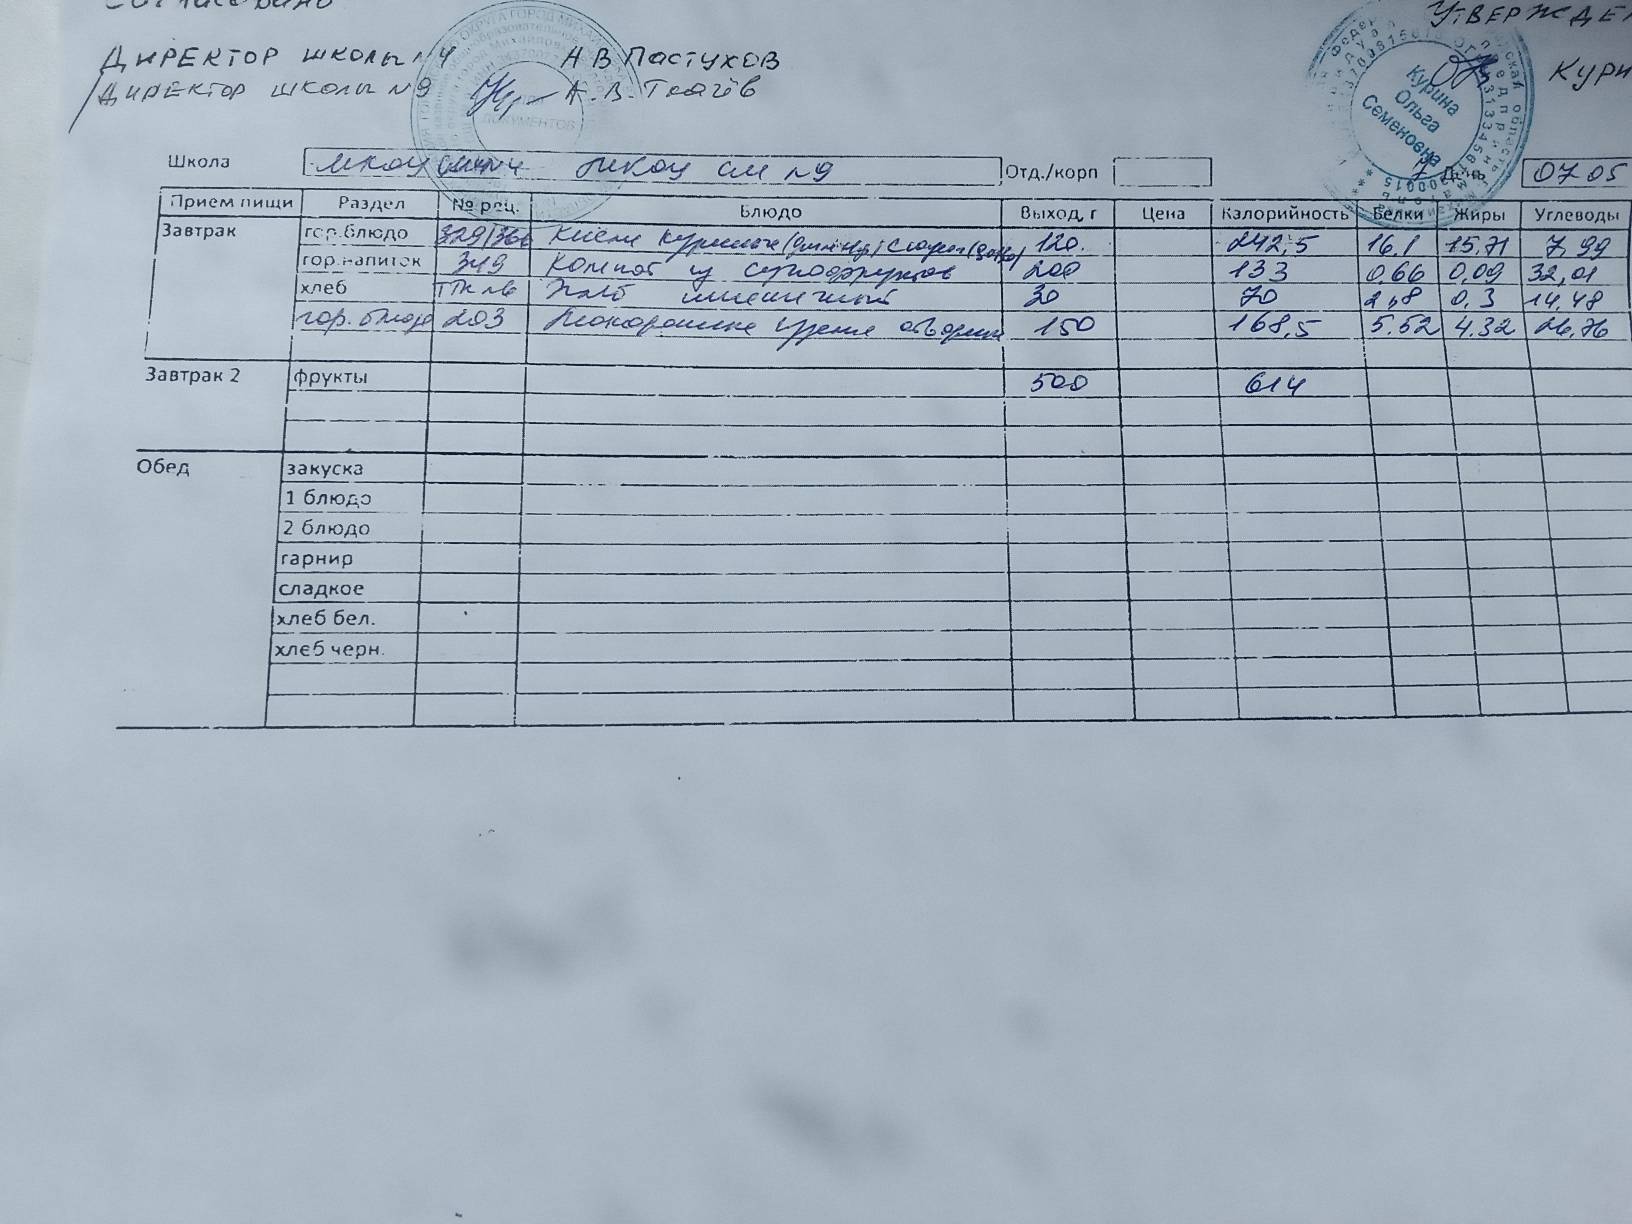 Согласовано
Директор школы №4 А В Пастухов
Директор школы №9 А.В. Ткачёв
Утвержде
Кури
Курина
Ольга
Семеновна
ДОКУМЕНТОВ
Школа МКОУ СШ №4 МКОУ СШ №9 Отд./корп 7 День 07 05
Прием пищи Раздел № рец. Блюдо Выход, г Цена Калорийность Белки Жиры Углеводы
Завтрак гор.блюдо 120. 242,5 16.1 15,71 7,99
гор.напиток 349 Компот из сухофруктов 200 133 0,66 0,09 32,01
хлеб Хлеб пшеничный 30 70 2,8 0,3 14,48
гор. блюдо 203 Макаронные изделия отварные 150 168,5 5.52 4,32 26,76
Завтрак 2 фрукты 500 614
Обед закуска
1 блюдо
2 блюдо
гарнир
сладкое
хлеб бел.
хлеб черн.